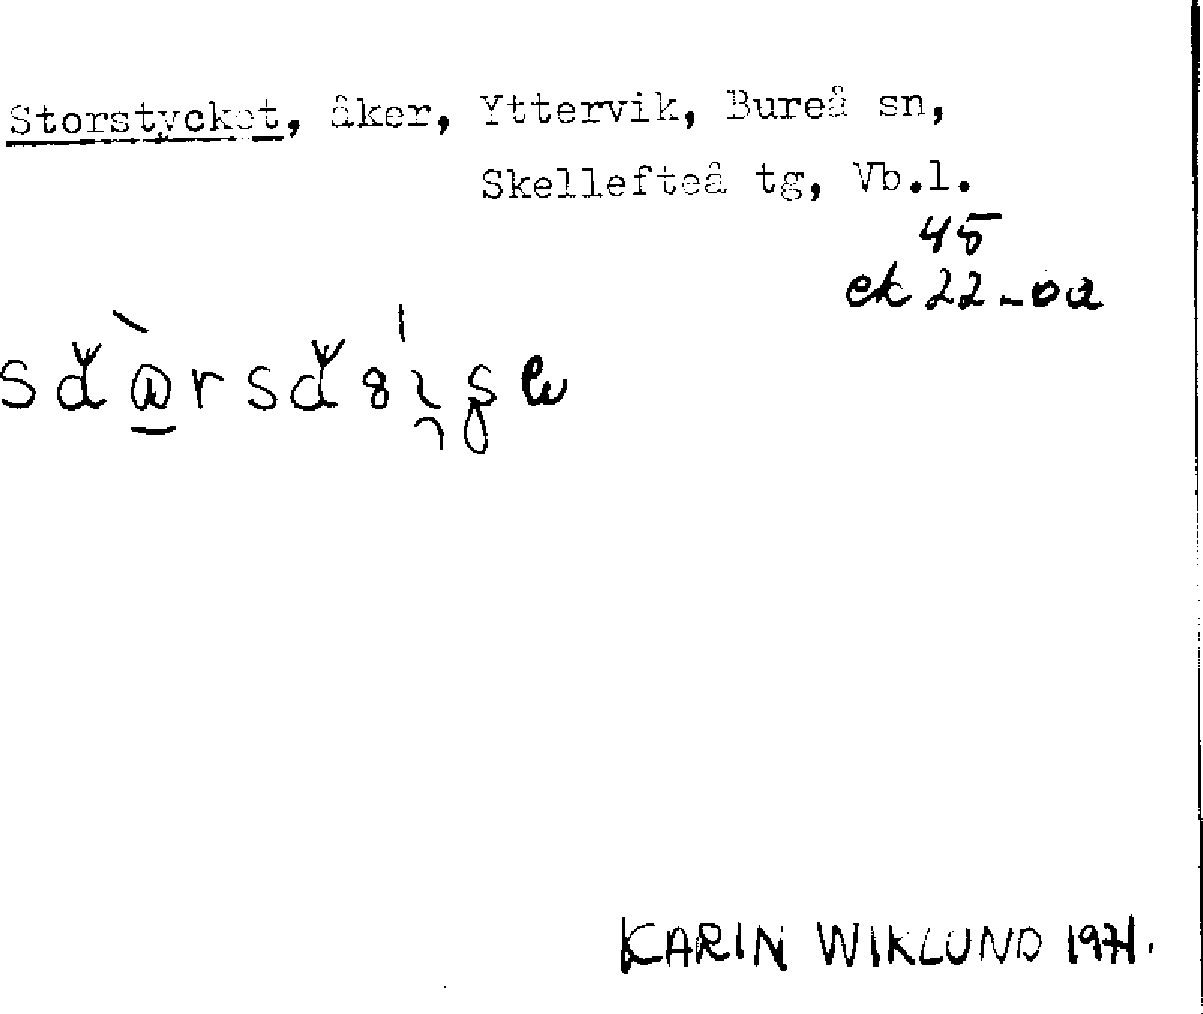 Storstycket, åker, Yttervik, Bureå sn,
Skellefteå tg, Vb.l.
45
ek 22
KARIN WIKLUND 1971.